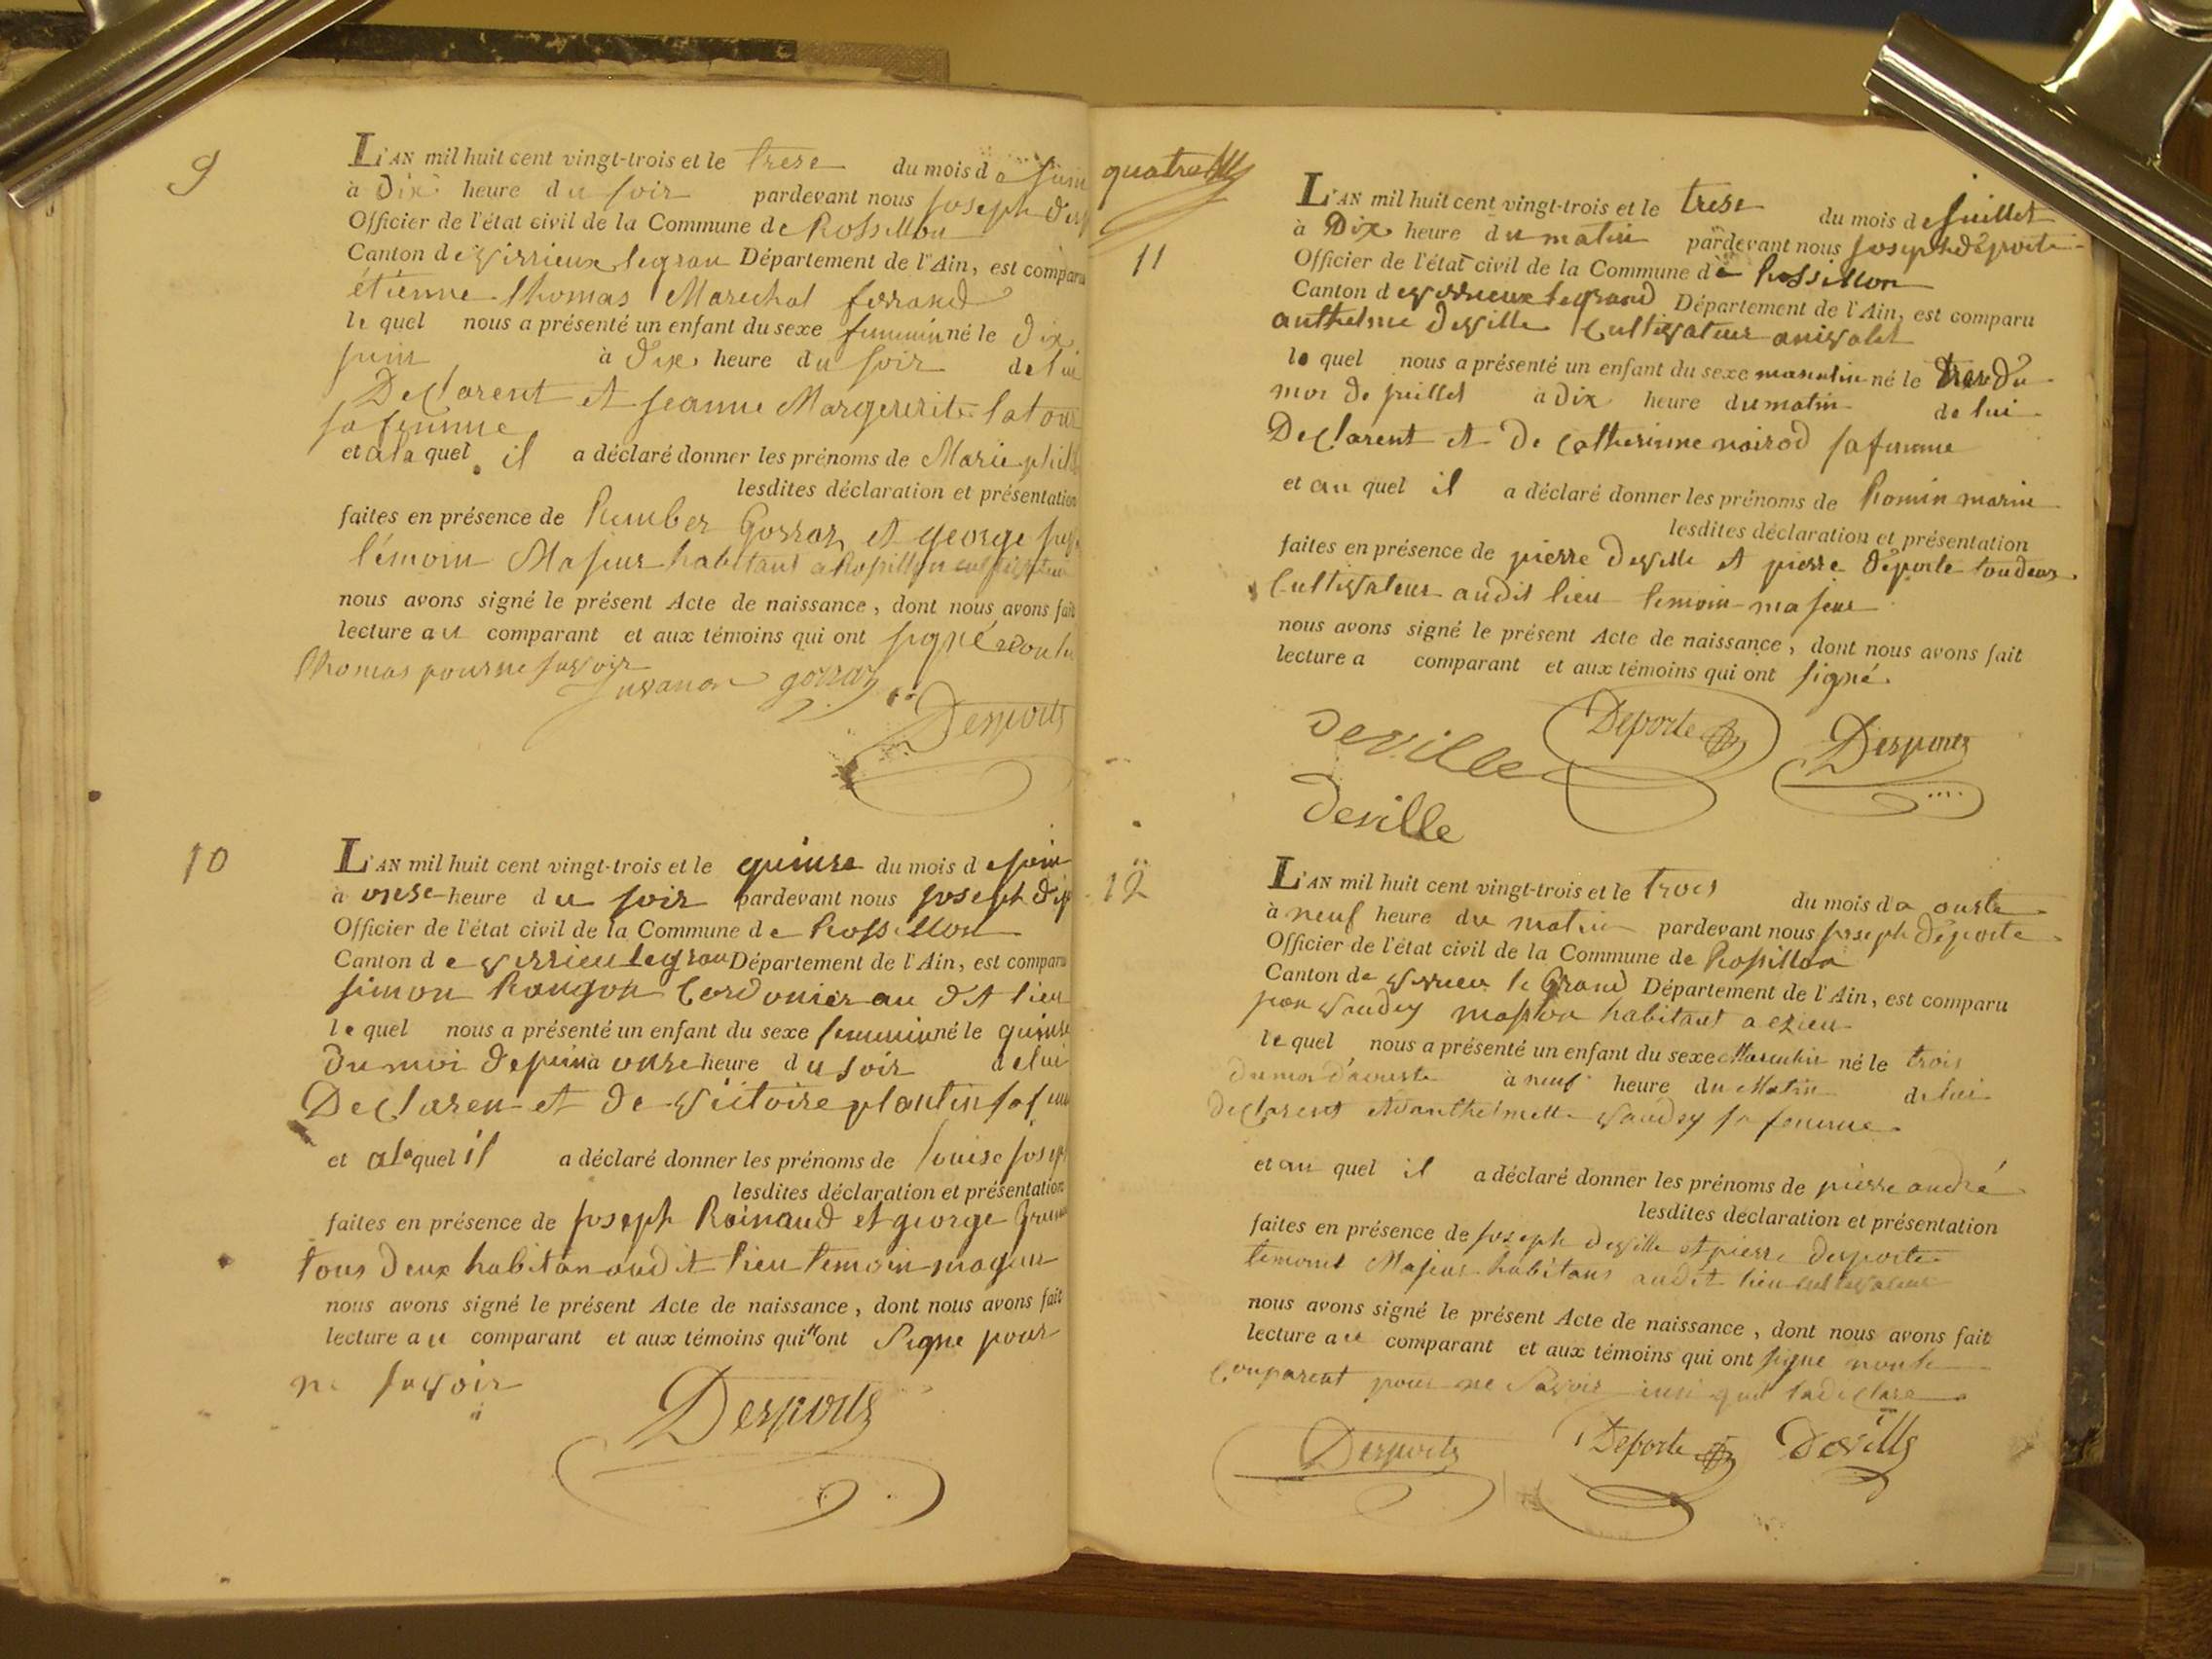 9
L'AN mil huit cent vingt-trois et le trese du mois de juin
à Dix heure du soir pardevant nous joseph
Officier de l'état civil de la Commune de Rossillon
Canton de virrieux legran Département de l'Ain, est comparu
étienne thomas Marechal ferrand
le quel nous a présenté un enfant du sexe feminin né le dix
juin à Dix heure du soir de lui
Declarent et jeanne Margererite latour
sa femme
et ala quel il a déclaré donner les prénoms de Marie
lesdites déclaration et présentation
faites en présence de Rember Gorraz et george
témoin Majeur habitant a Rossillon
nous avons signé le présent Acte de naissance, dont nous avons fait
lecture au comparant et aux témoins qui ont signé
thomas pour ne savoir
juvanon gorraz
Desports
10
L'AN mil huit cent vingt-trois et le quinse du mois de juin
à onse heure du soir pardevant nous joseph
Officier de l'état civil de la Commune de Rossillon
Canton de virrieu legran Département de l'Ain, est comparu
simon Rougon Cordonier au dit lieu
le quel nous a présenté un enfant du sexe feminin né le quinse
du moi de juin à onse heure du soir de lui
Declaren et de victoire plantin sa
et ala quel il a déclaré donner les prénoms de louise
lesdites déclaration et présentation
faites en présence de joseph Rainaud et george
tous deux habitan audit lieu temoin
nous avons signé le présent Acte de naissance, dont nous avons fait
lecture au comparant et aux témoins qui n ont Signe pour
ne savoir
Desports
quatre
11
L'AN mil huit cent vingt-trois et le trese du mois de juillet
à Dix heure du matin pardevant nous joseph déporte
Officier de l'état civil de la Commune de Rossillon
Canton de virrieux legrand Département de l'Ain, est comparu
anthelme deville Cultivateur
le quel nous a présenté un enfant du sexe masculin né le trese du
moi de juillet à Dix heure du matin de lui
Declarent et de catherinne noirod sa femme
et au quel il a déclaré donner les prénoms de Romin marin
lesdites déclaration et présentation
faites en présence de pierre deville et pierre déporte tous deux
Cultivateur audit lieu temoin majeur
nous avons signé le présent Acte de naissance, dont nous avons fait
lecture a comparant et aux témoins qui ont signé.
deville Deporte Desports
deville
12
L'AN mil huit cent vingt-trois et le trois du mois d'a ouste
à neuf heure du matin pardevant nous joseph déporte
Officier de l'état civil de la Commune de Rossillon
Canton de virrieu le Grand Département de l'Ain, est comparu
jean vaudey masson habitant a
le quel nous a présenté un enfant du sexe Masculin né le trois
du moi d'aouste à neuf heure du Matin de lui
declarent et danthelmette vaudey sa femme
et au quel il a déclaré donner les prénoms de pierre andré
lesdites déclaration et présentation
faites en présence de joseph deville et pierre desporte
temoins Majeur habitans audit lieu cultivateur
nous avons signé le présent Acte de naissance, dont nous avons fait
lecture au comparant et aux témoins qui ont signe non le
Comparent pour ne Savoir
Desports Deporte deville